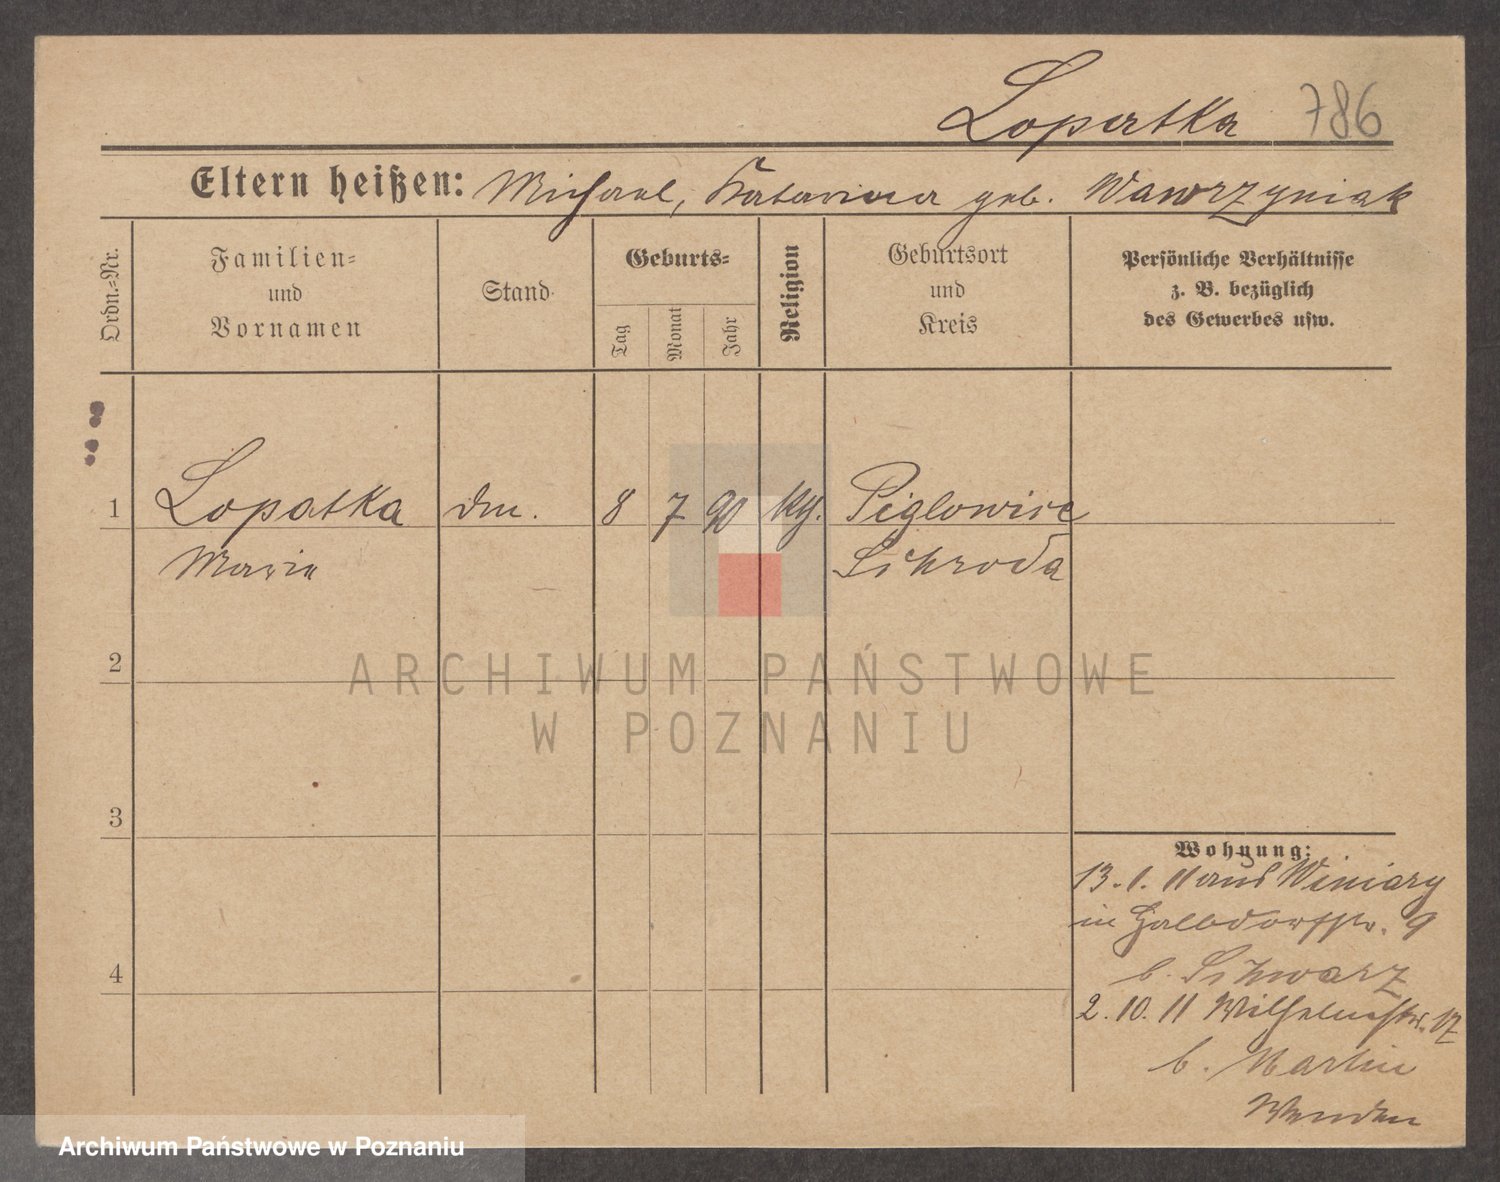 Lopatka 786
Eltern heißen: Michael, Katarina geb. Wawrzyniak
Ordn.=Nr.
Familien=
und
Vornamen
Stand
Geburts=
Tag
Monat
Jahr
Religion
Geburtsort
und
Kreis
Persönliche Verhältnisse
z. B. bezüglich
des Gewerbes usw.
1 Lopatka dm. 8 7 90 Piglowice
Maria Schroda
2
ARCHIWUM PAŃSTWOWE
W POZNANIU
3
Wohnung:
13. 1. 11 aus Winiary
in Halbdorfstr. 9
b. Schwarz
4
2. 10. 11 Wilhelmstr. 17
b. Martin
Archiwum Państwowe w Poznaniu